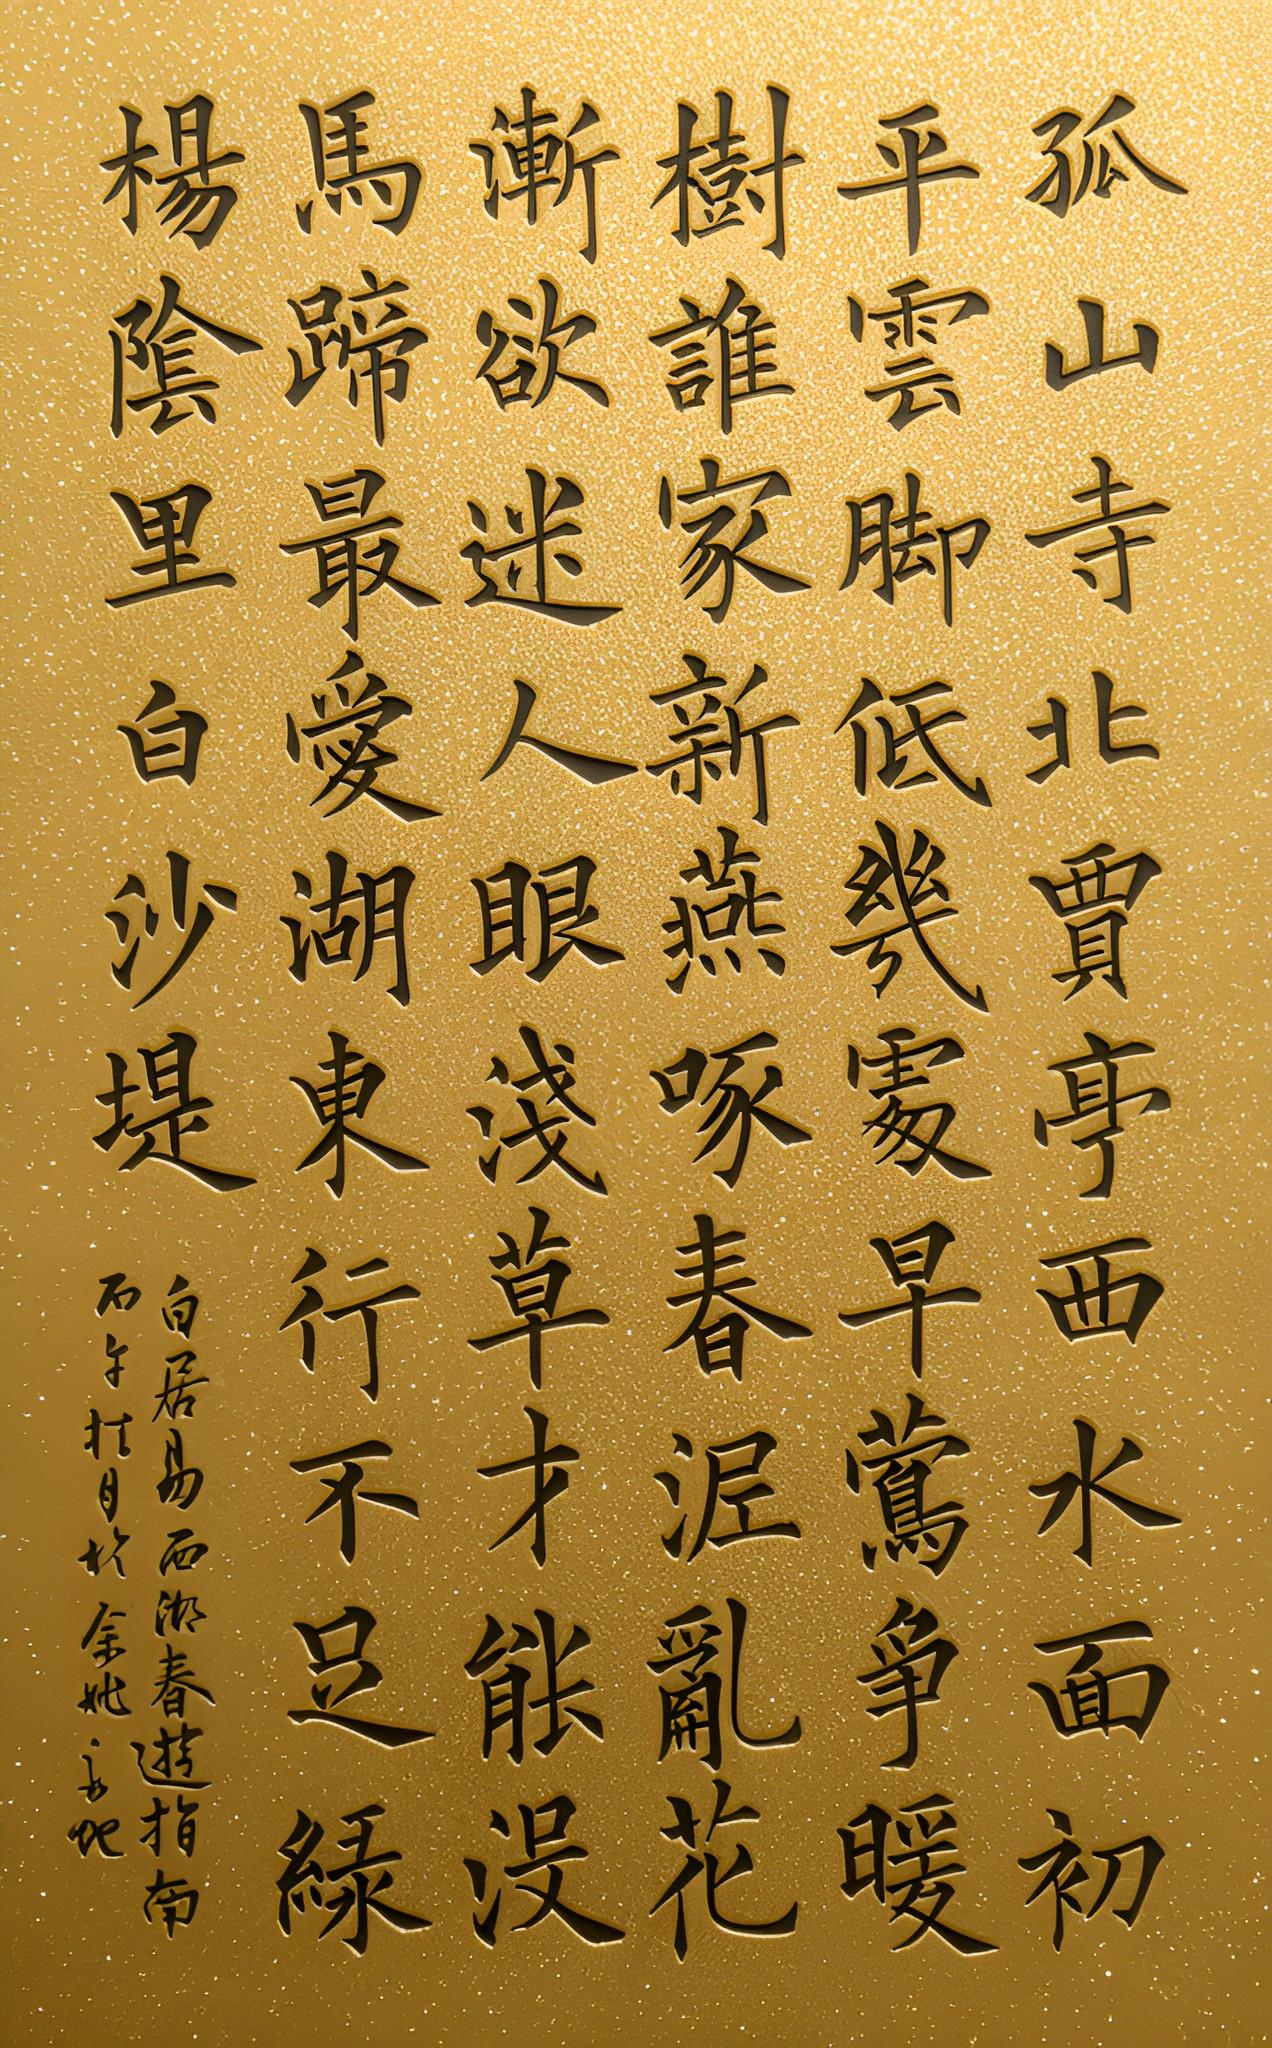 孤山寺北賈亭西水面初
平雲脚低幾處早鶯爭暖
樹誰家新燕啄春泥亂花
漸欲迷人眼淺草才能沒
馬蹄最愛湖東行不足綠
楊陰里白沙堤
白居易西湖春遊指南
丙午桂月於余姚